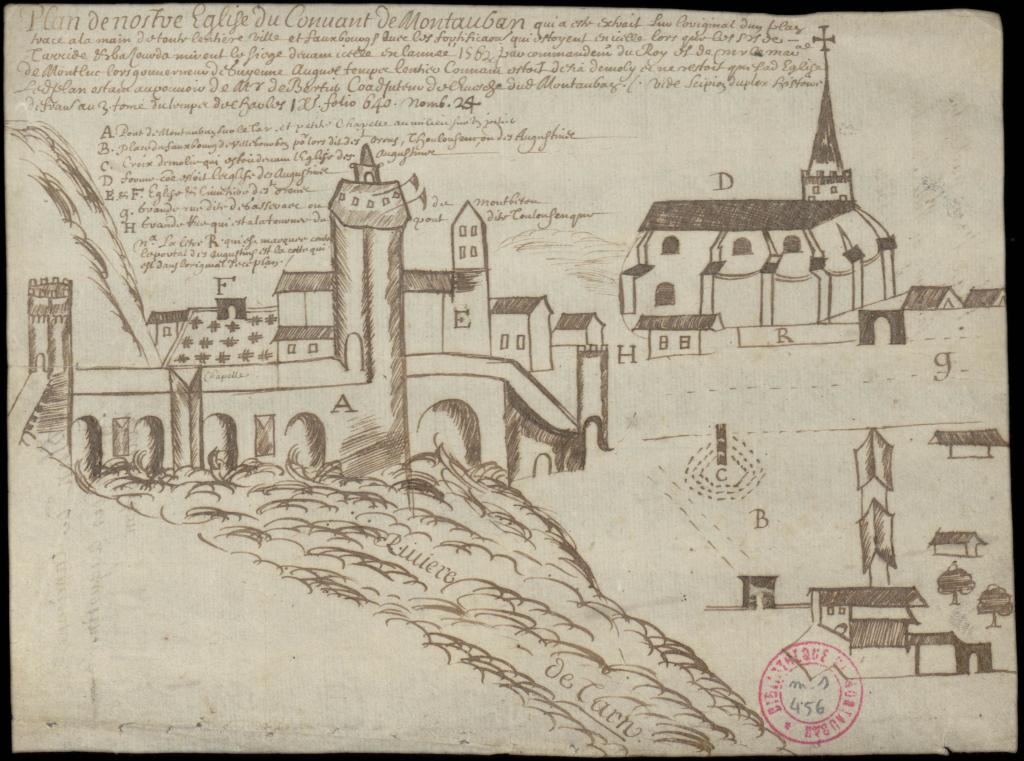 Plan de nostre Eglise du Convant de Montauban qui a este extrait sur loriginal dun plan
trace a la main de toute lentiere ville et fauxbourgs avec les fortificaons qui estoyent en icelle lors que les Srs de
Tarride mirent le siege devant icelle en lannee 1562 par commandemt du Roy et de
de Montluc lors gouverneur de Guyenne Auquel temps lentier Convant estoit desia demoly et ne restoit que lad Eglise
Led plan estant au pouvoir de Mr de Bertier Coadjuteur de levesche dud Montauban. Vide Scipion dupleix histoire
de france au 3 tome du temps de Charles IX. folio 640. Nomb. 24
A Pont de Montauban sur le Tar et petite Chapelle au milieu
B. place du fauxbourg de villebourbon dit des Thoulousen ou des Augustins
C. Croix de molin qui estoit devant l'Eglise des Augustins
D forme coe estoit leglise des Augustins
E et F. Eglise et Cimitiere de
g. Grande rue dite de ou de Montbeton
H Grande rue qui est a la tour du pont dite Toulousenque
Na. La letre R. qui est marquee contre
le portal des augustins est la cotte qui
est dans loriginal de ce plan.
D
F
E
Chapelle
A
H
R
g
C
B
Riviere
de Tarn
BIBLIOTHEQUE DE MONTAUBAN
ms
456